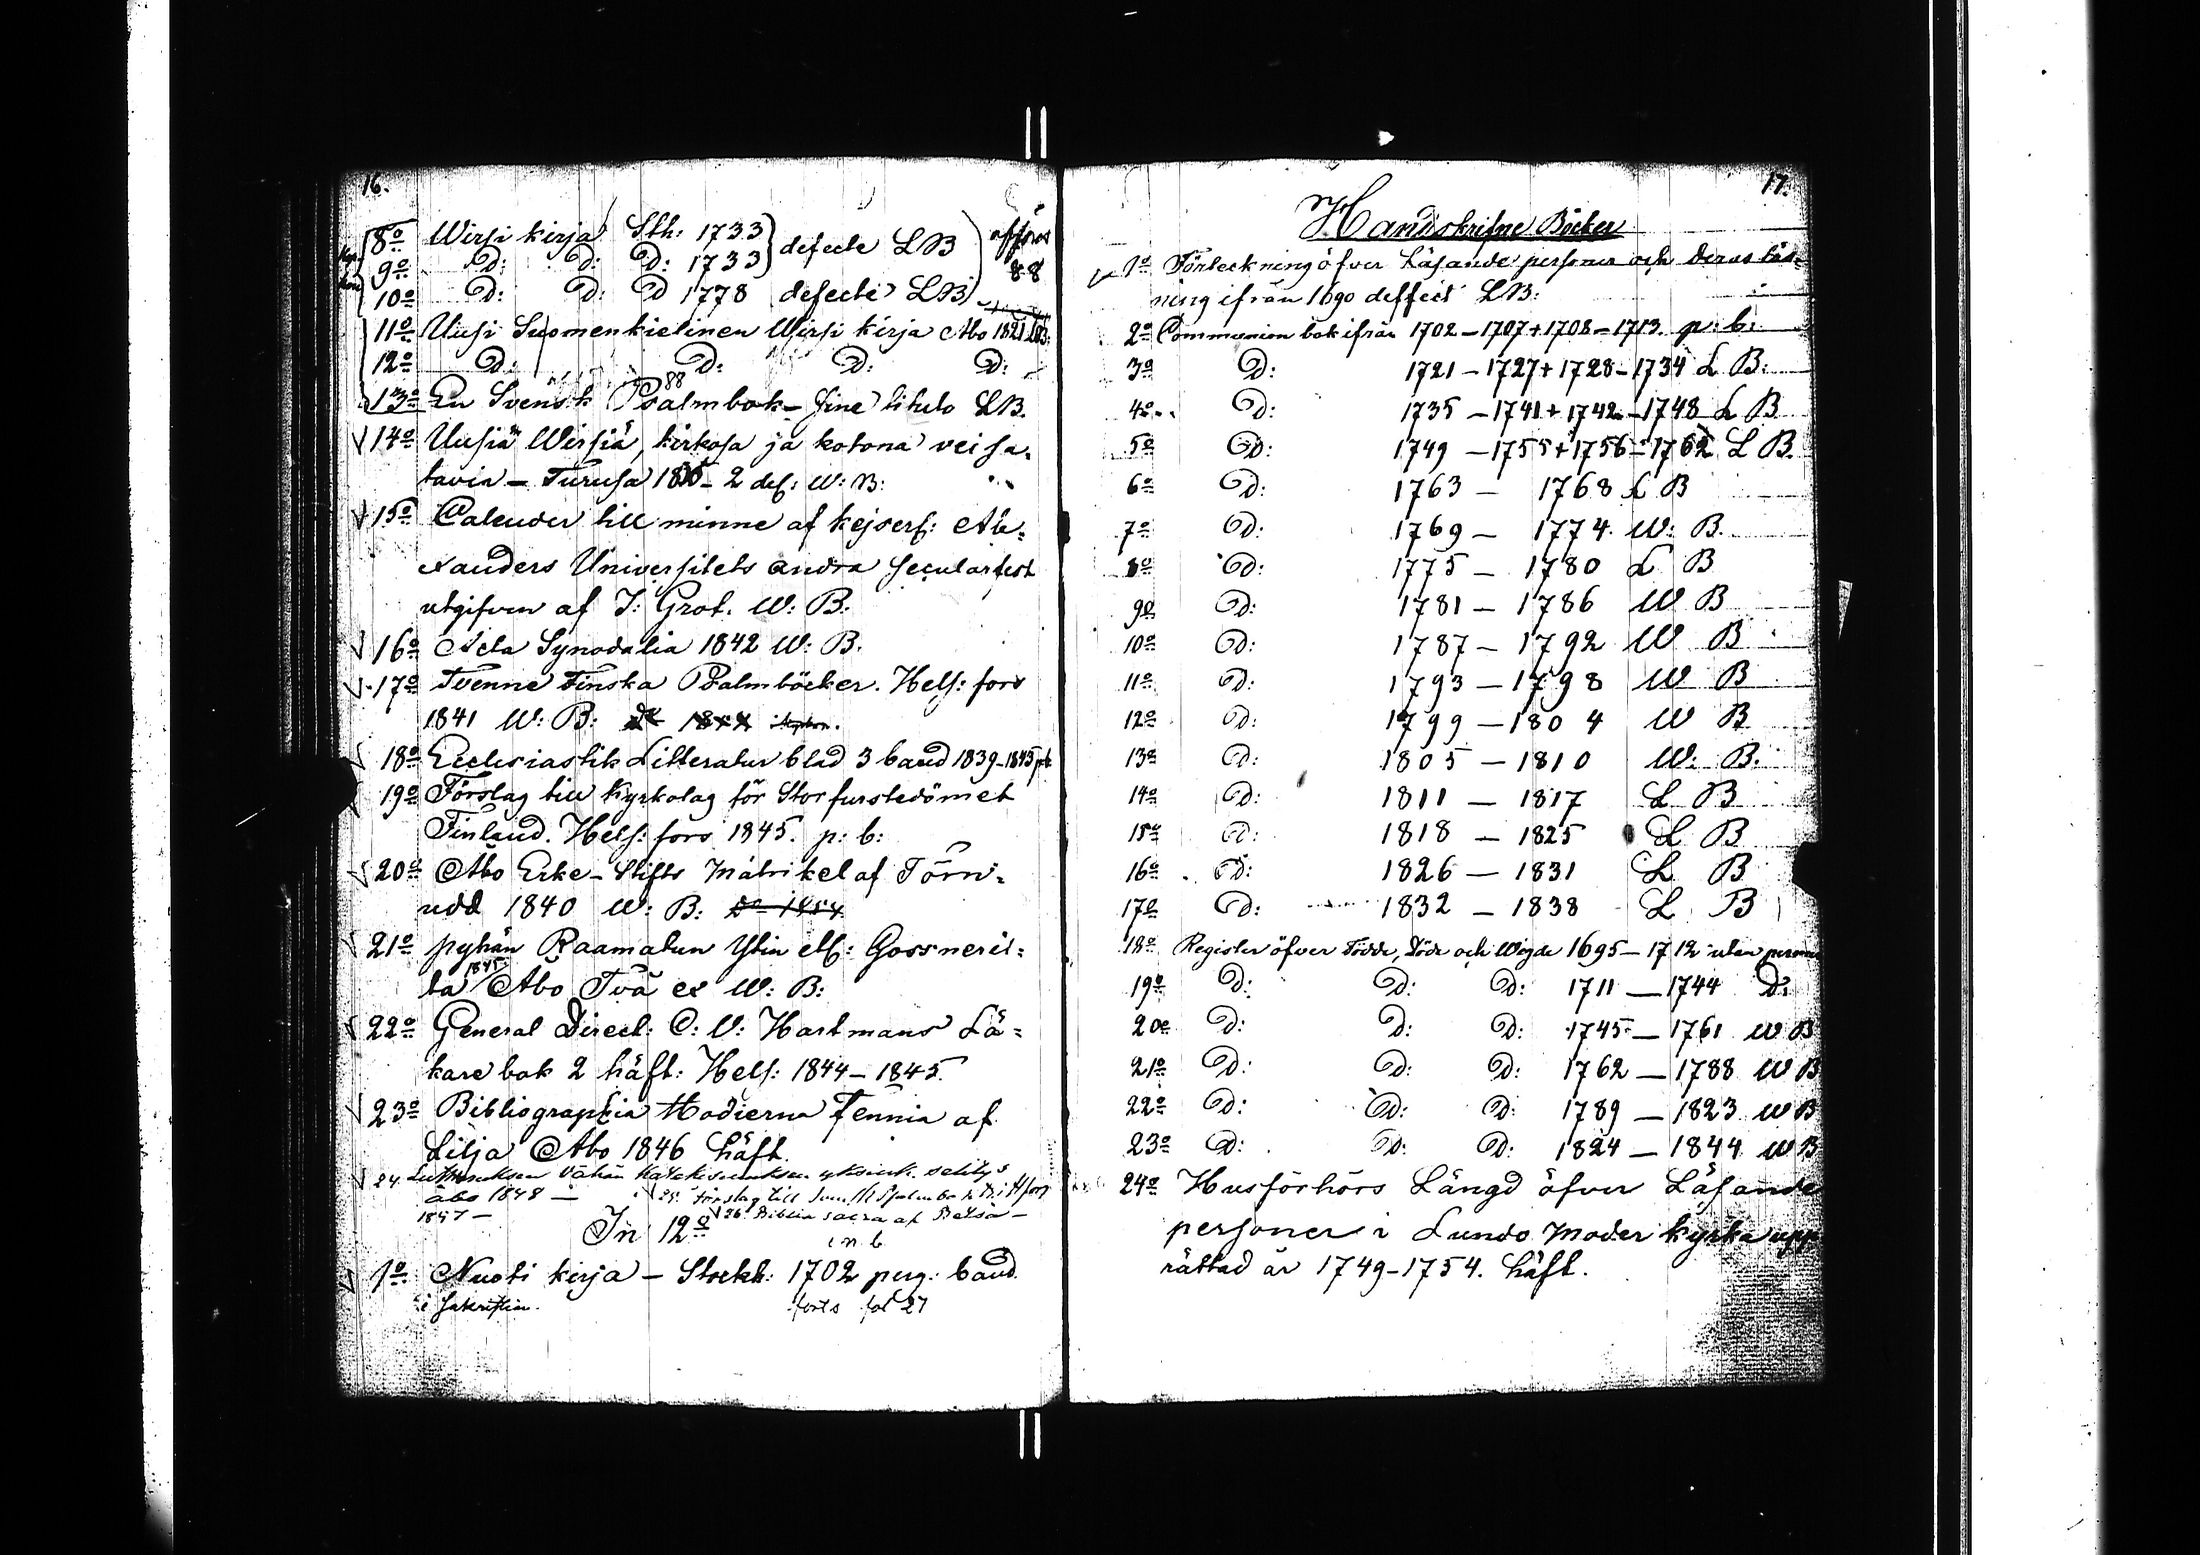 16.
8o Wirsi kirja Sth: 1733 defecte LB afförd
9o D: D: D: 1733 88
10o D: D: D 1778 defecte LB
11o Uusi Suomenkielinen Wirsi kirja Abo 1821
12o D: D: D: D:
88
13o En Svensk Psalmbok - sine titulo LB.
14o Uusiä Wirsiä, kirkosa ja kotona veisa-
tavia - Turusa 18 - 2 def: W: B:
15o Calender till minne af kejserl: Ale-
xanders Universitets andra secularfest
utgifven af J: Grot. W: B.
16o Acta Synodalia 1842 W: B.
17o Tvenne Finska Psalmböcker. Hels: fors
1841 W: B: do 1844
18o Ecclesiastik Litteratur blad 3 band 1839-1845 pb
19o Förslag till Kyrkolag för Storfurstedömet
Finland. Hels: fors 1845. p: b:
20o Abo Erke-Stifts Matrikel af Törn-
udd 1840 W: B: Do 1854
21o pyhän Raamatun Ystin ell: Gossneril-
1845
ta Abo Två ex W: B:
22o General Direct: C: D: Hartmans Lä-
kare bok 2 häft: Hels: 1844-1845.
23o Bibliographia Hodierna Fennia af
Lilja Abo 1846 häft.
24. Lutheruksen Vähän Katekismuksen yksink. selitys
åbo 1848 — 25. Förslag till Psalmbok H:fors
1857 — 26. Biblia sacra af
In 12o inb
1o Nuoti kirja - Stockh: 1702 perg: band.
i sakristian. forts fol 27
17.
Handskrifne Böcker
1o Förteckning öfver Läsande personer och deras läs-
ning ifrån 1690 deffect LB:
2o Communion bok ifrån 1702-1707+1708-1713. p: b:
3o D: 1721-1727+1728-1734 L B:
4o D: 1735-1741+1742-1748 L B
5o D: 1749-1755+1756-1762 L B.
6o D: 1763- 1768 L B
7o D: 1769- 1774. W: B.
8o D: 1775- 1780 L B
9o D: 1781- 1786 W B
10o D: 1787- 1792 W B
11o D: 1793-1798 W B
12o D: 1799-1804 W B
13o D: 1805-1810 W: B.
14o D: 1811-1817 L B
15o D: 1818-1825 L B
16o D: 1826-1831 L B
17o D: 1832-1838 L B
18o Register öfver Födde, Döde och Wigde 1695-1712 utan
19o D: D: D: 1711-1744 D:
20o D: D: D: 1745-1761 W B
21o D: D: D: 1762-1788 W B
22o D: D: D: 1789-1823 W B
23o D: D: D: 1824-1844 W B
24o Husförhörs Längd öfver Läsande
personer i Lundo Moder kyrka upp
rättad år 1749-1754. häft.